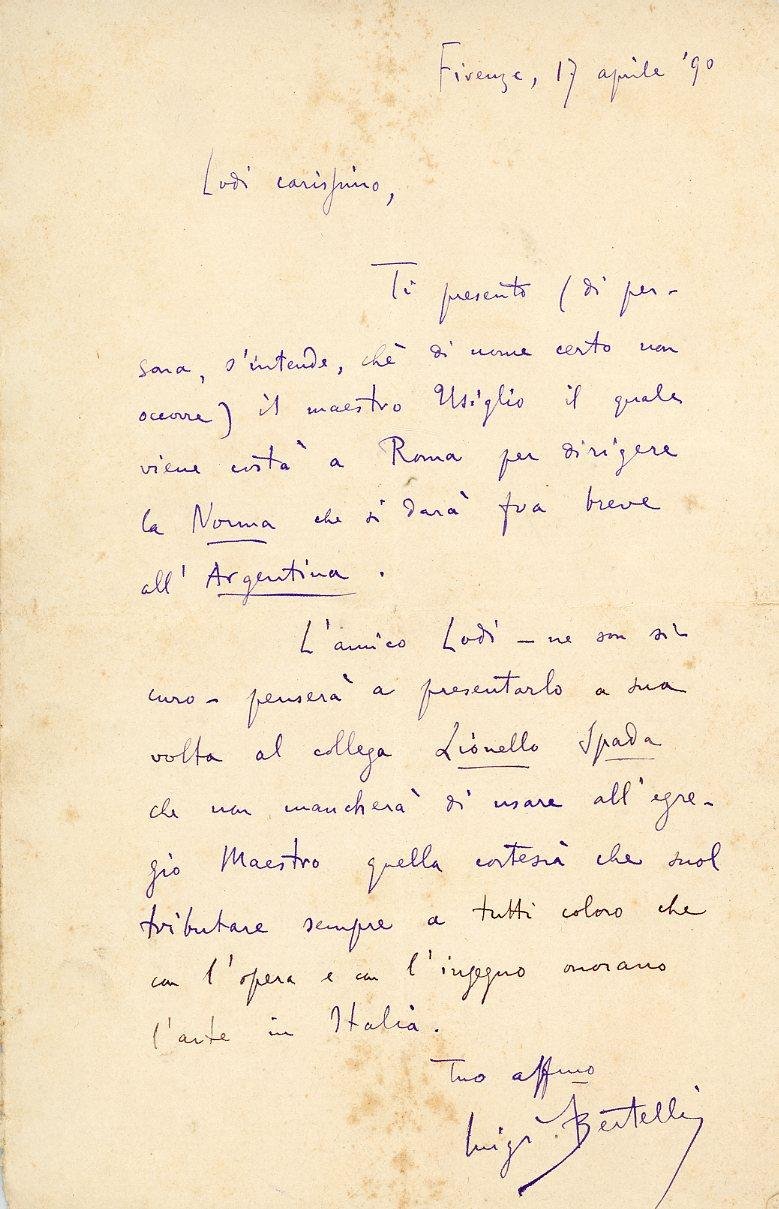 Firenze, 17 aprile '90
Lodi carissimo,
Ti presento (di per-
sona, s'intende, chè di nome certo non
occorre) il maestro Usiglio il quale
viene costà a Roma per dirigere
la Norma che si darà fra breve
all'Argentina.
L'amico Lodi – ne son si-
curo – penserà a presentarlo a sua
volta al collega Lionello Spada
che non mancherà di usare all'egre-
gio Maestro quella cortesia che suol
tributare sempre a tutti coloro che
con l'opera e con l'ingegno onorano
l'arte in Italia.
Tuo affmo
Luigi Bertelli